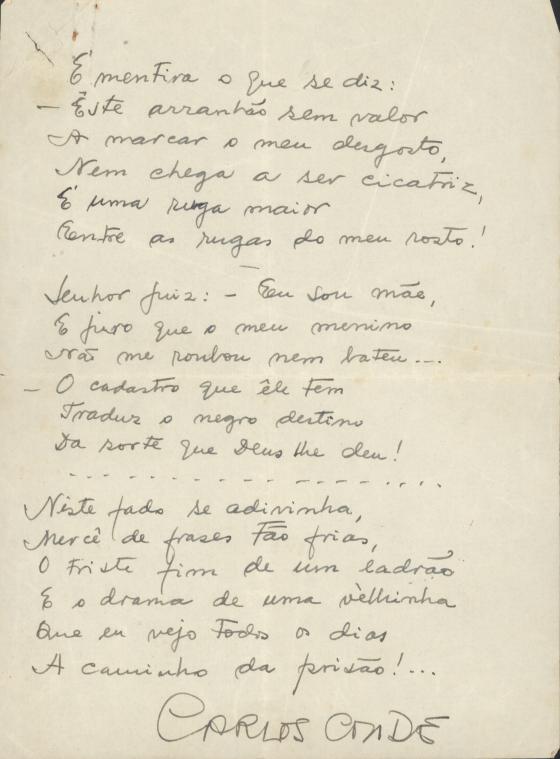 É mentira o que se diz:
— Êste arranhão sem valor
A marcar o meu desgosto,
Nem chega a ser cicatriz,
É uma ruga maior
Entre as rugas do meu rosto!
—
Senhor juiz: — Eu sou mãe,
E juro que o meu menino
Não me roubou nem bateu...
— O cadastro que êle tem
Traduz o negro destino
Da sorte que Deus lhe deu!
. . . . . . . . . . . . . . . . .
Nêste fado se adivinha,
Mercê de frases tão frias,
O triste fim de um ladrão
E o drama de uma vèlhinha
Que eu vejo todos os dias
A caminho da prisão!...
CARLOS CONDE